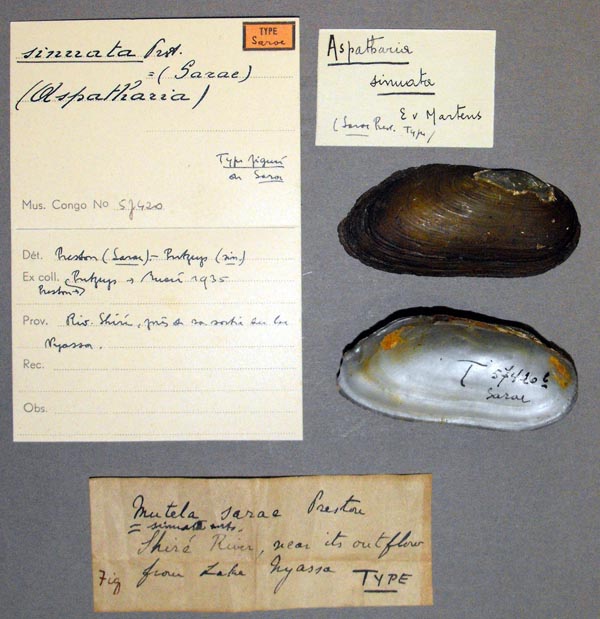 TYPE
Sarae
sinuata Prst.
= (Sarae)
(Aspatharia)
Type figuré
de Sarae
Mus. Congo No 57420
Dét. Preston (Sarae) - Putzeys (sin.)
Ex coll. Putzeys → 1935
Preston →
Prov. Riv. Shiré, près de sa sortie du lac
Nyassa.
Rec.
Obs.
Aspatharia
sinuata
E v Martens
(Sarae Prest. Type)
T 57420
Sarae
Mutela sarae Preston
= sinuata
Shiré River, near its outflow
Fig from Lake Nyassa TYPE